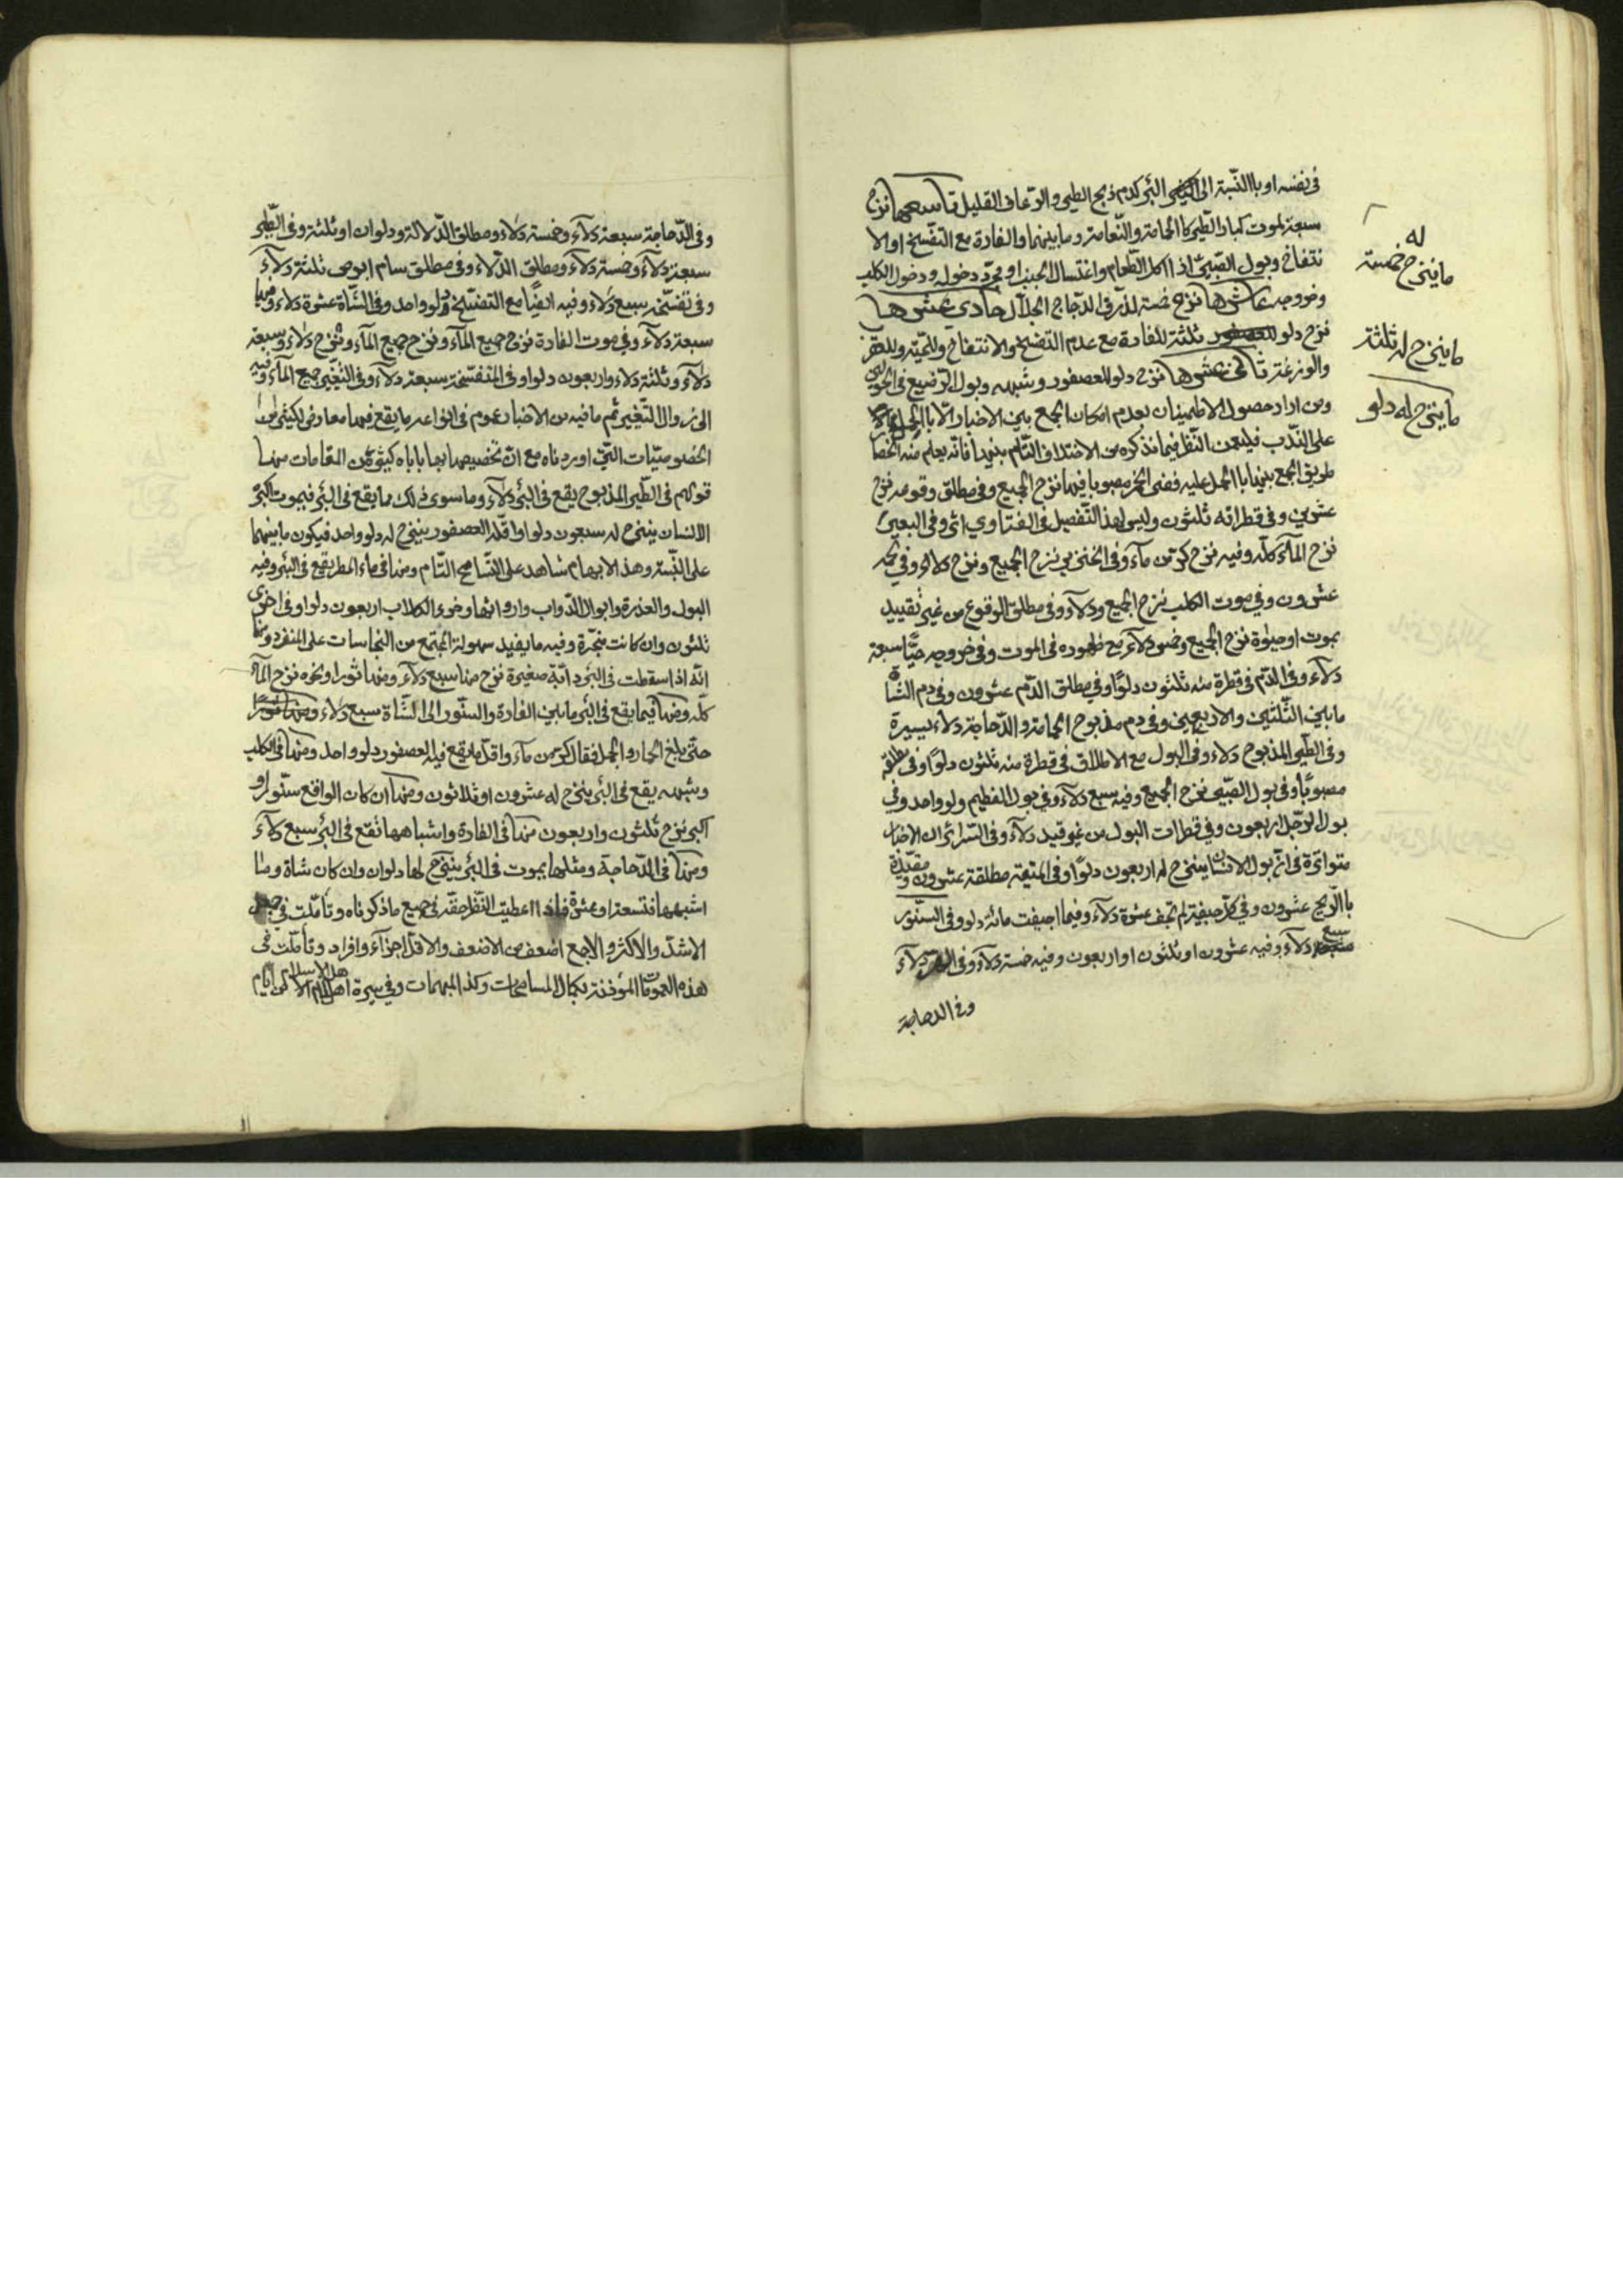 في نفسه او باالنّسبة الى البئر كدم ذبح الطير والرّعاف القليل تاسعها نزح
سبعة لموت كبار الطّير كا الحمامة والنّعامة وما بينهما والفارة مع التفسّخ او الا
نتفاخ وبول الصّبيّ اذا اكل الطّعام واغتسال الجنب او مجرّد دخوله ودخول الكلب
وخروجه عاشرها نزح خمسة لذرق الدجاج الجلّال حادي عشرها
نزح ثلثة للفارة مع عدم التفسّخ والانتفاخ وللحيّة
والوزغة ثاني عشرها نزح دلو للعصفور وشبهه وبول الرّضيع
ومن اراد حصول الاطمينان بعدم امكان الجمع بين الاخبار الّا باالحمل
على النّدب فليمعن النّظر فيما نذكره من الاختلاف التّام بينها فانّه يعلم منه انحصار
طريق الجمع بينها باالحمل عليه ففي الخمر مصبوبا فيها نزح الجميع وفي مطلق وقوعه نزح
عشرين وفي قطراته ثلثون وليس لهذا التّفصيل في الفتاوي اثر وفي البعير
نزح المآء كلّه وفيه نزح كرّ من مآء وفي الخنزير نزح الجميع ونزح دلاء وفي
عشرون وفي موت الكلب نزح الجميع ودلآء وفي مطلق الوقوع من غير تقييد
بموت او حيٰوة نزح الجميع وخمس دلآء مع ظهوره في الموت وفي خروجه حيّا سبعة
دلآء وفي الدّم في قطرة منه ثلثون دلوًا وفي مطلق الدّم عشرون وفي دم الشّاة
مابين الثّلثين والاربعين وفي دم مذبوح الحمامة والدّجاجة دلاء يسيرة
وفي الطّير المذبوح دلاء وفي البول مع الاطلاق في قطرة منه ثلثون دلوًا وفي مطلقه
مصبوبًا وفي بول الصّبيّ نزح الجميع وفيه سبع دلآء وفي بول الفطيم دلو واحد وفي
بول الرّجل اربعون وفي قطرات البول من غير قيد دلآء وفي السّرائر ان الاخبار
متواترة في انّ بول الانسان ينزح له اربعون دلوًا وفي الميّتة مطلقة عشرون ومقيّدة
باالرّيح عشرون وفي كلّ جيفة لم تجف عشرة دلآء وفيما اجيفت مائة دلو وفي السنّور
سبع دلآء وفيه عشرون او ثلثون او اربعون وفيه خمسة دلآء وفي دلآء
وفي الدجاجة
له
ماينزح خمسة
ماينزح له ثلثة
ماينزح له دلو
وفي الدّجاجة سبعة دلآء وخمسة دلاء ومطلق الدّلالة ودلوان او ثلثة وفي الطّير
سبعة دلآء وخمسة دلآء ومطلق الدّلاء وفي مطلق سام ابرص ثلثة دلآء
وفي تفسّخه سبع دلاء وفيه ايضًا مع التفسّخ دلو واحد وفي الشّاة عشرة دلاء وفيها
سبعة دلآء وفي موت الفارة نزح جميع المآء ونزح جميع المآء ونزح دلاء وسبعة
دلآء وثلثة دلاء واربعون دلوا وفي المتفسّخة سبعة دلآء وفي التغيّر جميع المآء وفيه
الى زوال التّغير ثم مافيه من الاخبار عموم في انواعه مايقع فيها معارض لكثير من
الخصوصيّات التّي اوردناه مع انّ تخصيصها بها ياباه كثير من المقامات منها
قولهم في الطّير المذبوح يقع في البئر دلآء وما سوى ذلك مما يقع في البئر فيموت اكبره
الانسان ينزح له سبعون دلوا واقلّه العصفور ينزح له دلو واحد فيكون مابينهما
على النّسبة وهذا الابهام شاهد على التّسامح التّام ومنها في ماء المطر يقع في البئر وفيه
البول والعذرة وابوال الدّواب وارواثها وخرء الكلاب اربعون دلوا وفي اخرى
ثلثون وان كانت منجّرة وفيه مايفيد سهولة المجتمع من النجاسات على المنفرد ومنها
انّه اذا سقطت في البئر دابّة صغيرة نزح منها سبع دلآء ومنها ثورا ونحوه نزح المآء
كلّه ومنها فيما يقع في البئر مابين الفارة والسنّور الى الشّاة سبع دلاء
حتّى بلغ الحمار والجمل فقال كرّ من مآء واقلّ مايقع فيه العصفور دلو واحد ومنها في الكلب
وشبهه يقع في البئر ينزح له عشرون او ثلاثون ومنها ان كان الواقع سنّورا او
اكبر نزح ثلثون واربعون منها في الفارة واشباهها تقع في البئر سبع دلآء
ومنها في الدّجاجة ومثلها يموت في البئر ينزح لها دلوان وان كان شاة وما
اشبهها فتسعة او عشرة فاذا اعطيت النّظر حقّه في جميع ماذكرناه وتأمّلت في حمل
الاشدّ والاكثر والاجمع اضعف من الاضعف والاقلّ اجزآء وافراد وتأمّلت في
هذه العمومات الموذنة بكمال المسامحات وكذا المبهمات وفي سيرة اهل الاسلام من ايّام